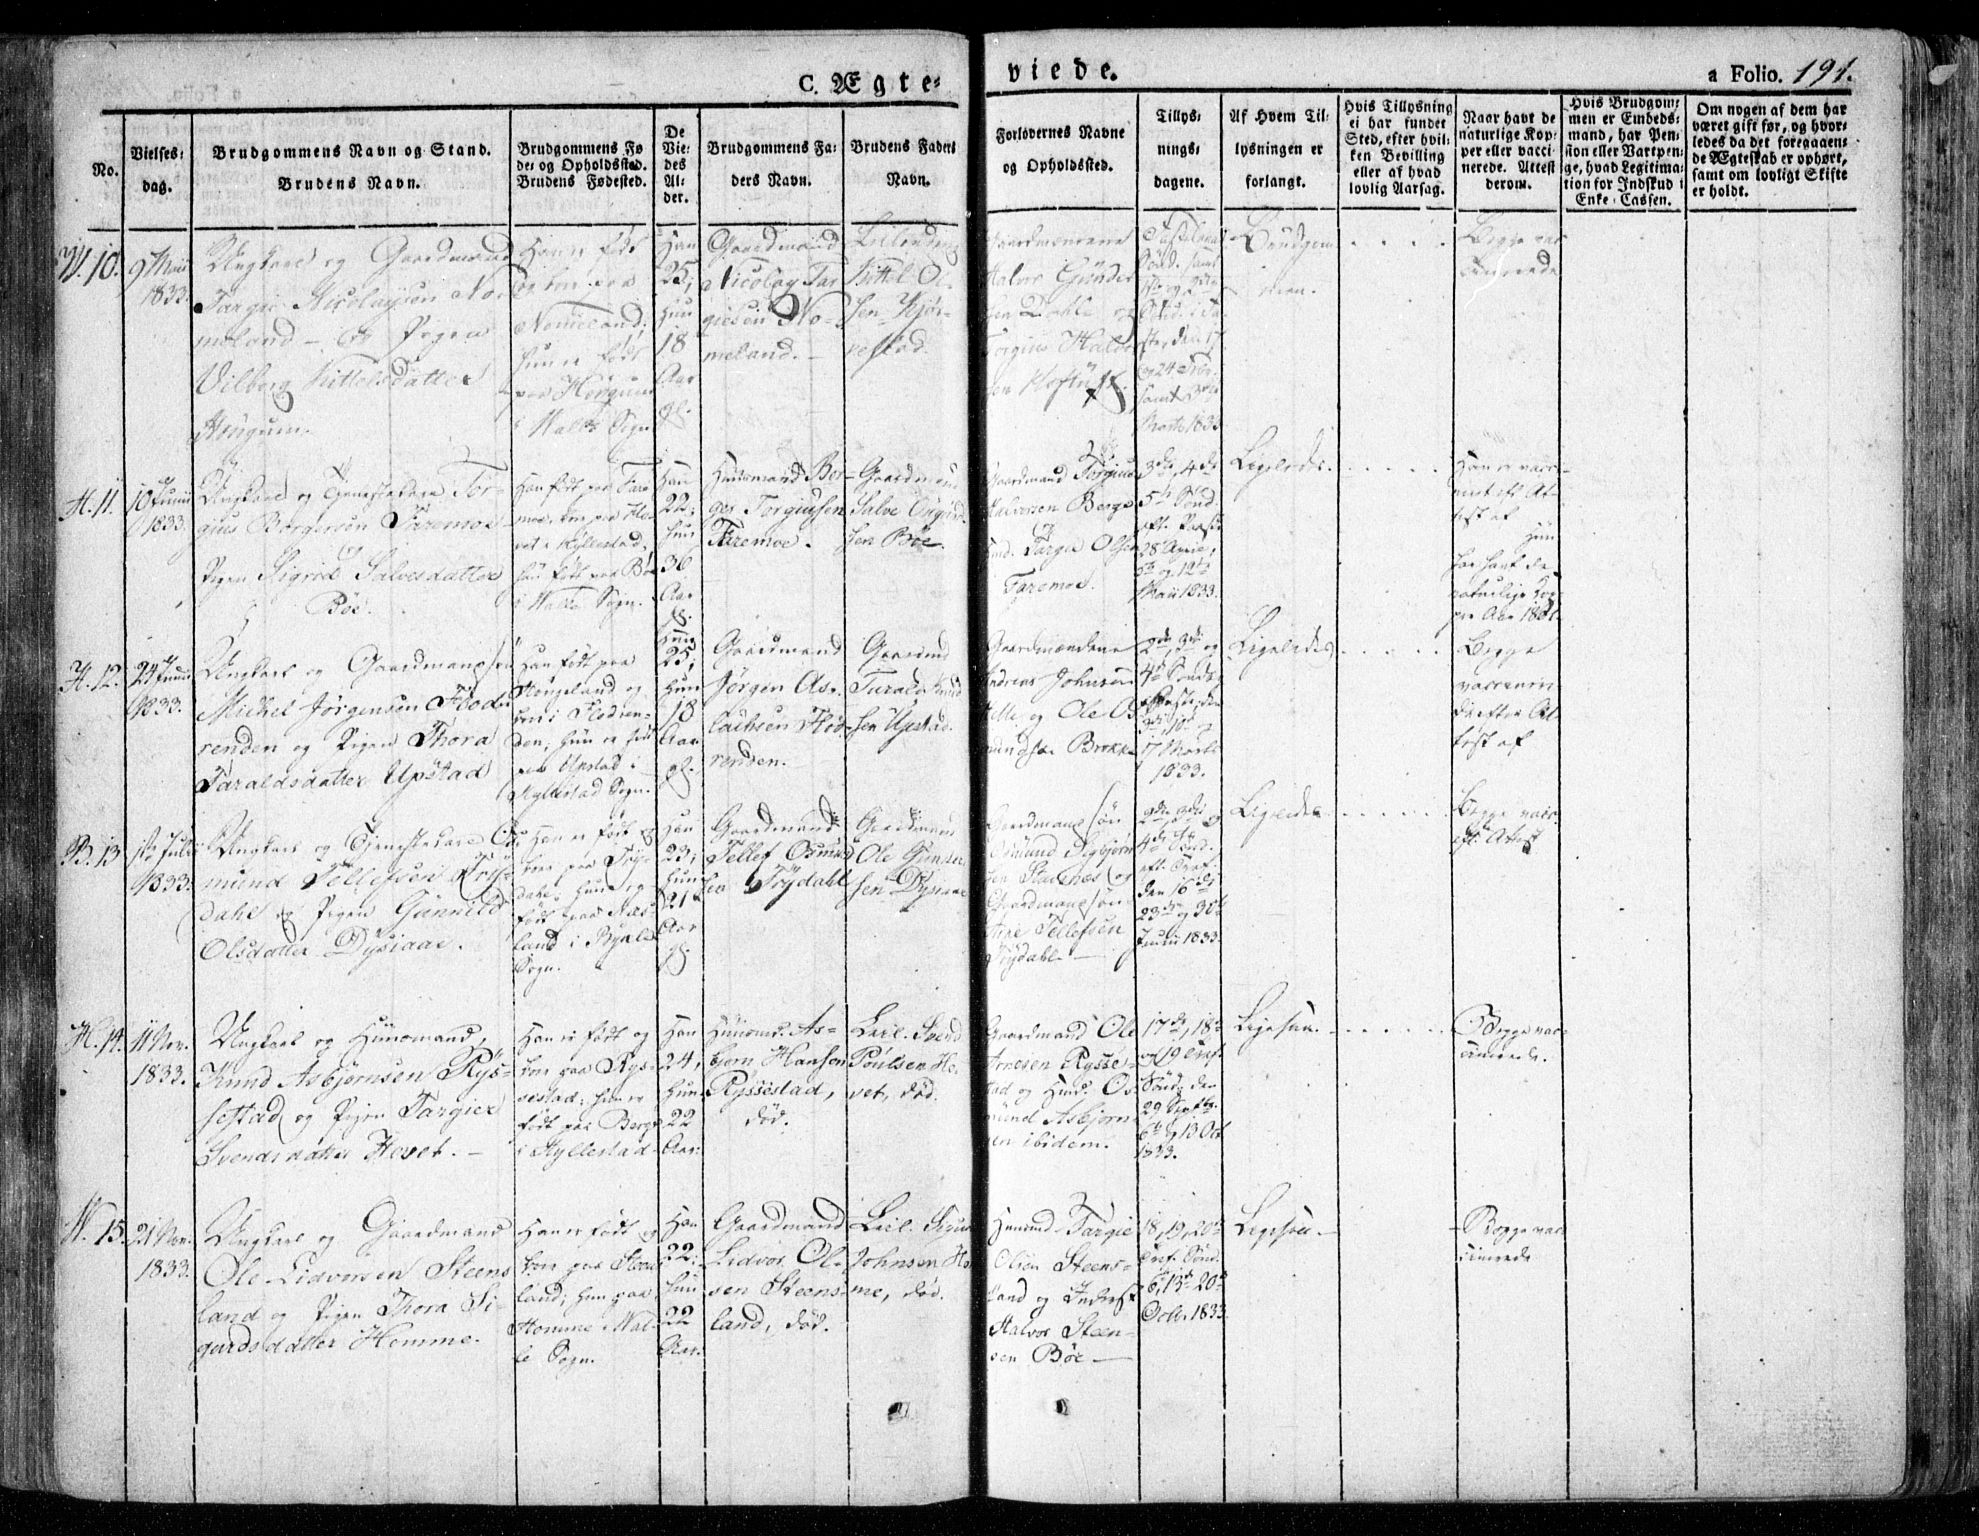 C. Ægte-
viede.
a Folio. 191.
No.
Vielses-
dag.
Brudgommens Navn og Stand.
Brudens Navn.
Brudgommens Fø
de- og Opholdssted.
Brudens Fødested.
De
Vie-
des
Al-
der.
Brudgommens Fa-
ders Navn.
Brudens Faders
Navn.
Forlovernes Navne
og Opholdssted.
Tillys-
nings-
dagene.
Af Hvem Til-
lysningen er
forlangt.
Hvis Tillysning
ei har fundet
Sted, efter hvil-
ken Bevilling
eller af hvad
lovlig Aarsag.
Naar havt de
naturlige Kop-
per eller vacci-
nerede. Attest
derom.
Hvis Brudgom-
men er Embeds-
mand, har Pen-
sion eller Vartpen-
ge, hvad Legitima-
tion for Indskud i
Enke-Cassen.
Om nogen af dem har
været gift før, og hvor-
ledes da det foregaaen-
de Ægteskab er ophørt,
samt om lovligt Skifte
er holdt.
10.
9 Maii
1833.
Ungkarl og Gaardmand
Targie Nicolaysen No-
meland - og Pigen
Vilborg Kittelsdatter
Han er født
og boer paa
Nomeland;
hun er født
i Walle Sogn
Han
25,
hun
18
Aar
gl.
Gaardmand
Nicolay Tar
giesen No-
meland. -
Kittel Ol-
sen Kjør-
vestad.
Gaardmændene
Halvor Gunder
sen Dahle og
Torgius Halvor
17
og 24 Febr.
samt 3die
Marts 1833
Brudgom
men.
. . . .
Begge vac
cinerede
H. 11.
10 Junii
1833.
Ungkarl og Tjenestekarl Tor-
gius Borgersen Faremoe
Pigen Sigrid Salvesdatter
Bøe.
Han født paa Fare
moe, boer paa He-
vet i Hyllestad,
hun født paa Bøe
i Walle Sogn.
Han
22;
hun
36
Aar
gl.
Huusmand Bor-
ger Torgiusen
Faremoe.
Gaardmand
Salve
sen Bøe.
Gaardmand Torgius
Halvorsen Berge
Targie Olsen
Faremoe.
3die, 4de
5te Sønd.
eft. Paaske
28 April,
5te og 12te
Maii 1833.
Ligeledes.
. . . . .
Han er vacci-
neret eft At-
test af
Hun
har havt de
naturlige Kop-
per Aar 1801.
H. 12.
24 Junii
1833.
Ungkarl og Gaardmandsøn
Michel Jørgensen Flode
renden og Pigen Thora
Taraldsdatter Upstad
Han født paa
Haugeland og
boer i Flodren-
den; hun er født
paa Upstad i
Hyllestad Sogn.
Han
25,
hun
18
Aar
gl.
Gaardmand
Jørgen As-
lachsen Flod-
renden.
Gaardmd
Tarald Knud
sen Upstad.
Gaardmændene
Andreas Johnsen
Helle og Ole Os
mundsen Brokke
2den, 3die og
4de Sønd.
i Faste, den
3die, 10de og
17 Marts
1833.
Ligeledes
. . . . .
Begge
vaccinere-
de efter At-
test af
B. 13
1ste Julii
1833.
Ungkarl og Tjenestekarl Os
mund Tellefsen Frøy-
dahl og Pigen Gunnild
Olsdatter Dysiaae.
Han er født og
boer paa Frøy-
dahl; hun og
født paa Næs-
land i Bykle
Sogn.
Han
23;
hun
21
Aar
gl.
Gaardmand
Tellef Osmund
sen Frøydahl
Gaardmand
Ole Gunder
sen Dysiaae
Gaardmandsøn
Osmund Sigbjørn
sen Stavenes og
Gaardmandsøn
Arne Tellefsen
Frøydahl -
2den, 3die og
4de Sønd.
eft. Tref.
den 16de
23de og 30te
Junii 1833.
Ligeledes
. . . . .
Begge vacc.
eft. Attest
H. 14.
11 Nov.
1833.
Ungkarl og Huusmand,
Knud Asbjørnsen Rys-
sestad og Pigen Targier
Svendsdatter Hovet. -
Han er født og
boer paa Rys-
sestad; hun er
født paa Berge
i Hyllestad
Han
24,
hun
22
Aar
Huusmd. As-
bjørn Hansen
Ryssestad,
død.
Leil. Svend
Poulsen Ho-
vet, død.
Gaardmand Ole
Arnesen Rysse-
stad og Husmd. Os-
mund Asbjørn-
sen ibidem.
17de, 18de
og 19 Tref.
Sønd. den
29 Septbr.
6te og 13 Oct
1833.
Ligesaa.
. . . . .
Begge vac-
cinerede.
15.
21 Nov.
1833.
Ungkarl og Gaardmand
Ole Lidvorsen Steens
land og Pigen Thora Si-
gurdsdatter Homme.
Han er født og
boer paa Steens
land; hun paa
Homme i Wal-
le Sogn.
Han
22;
hun
22
Aar.
Gaardmand
Lidvor Ol-
sen Steens-
land, død.
Leil. Sigur
Johnsen Ho-
me, død.
Huusmd Targie
Olsen Steens-
land og Inderst
Halvor Steen-
sen Bøe -
18, 19, 20de
Tref. Sønd.
6, 13de 20de
Octb. 1833
Ligesaa -
Begge vac
cinerede